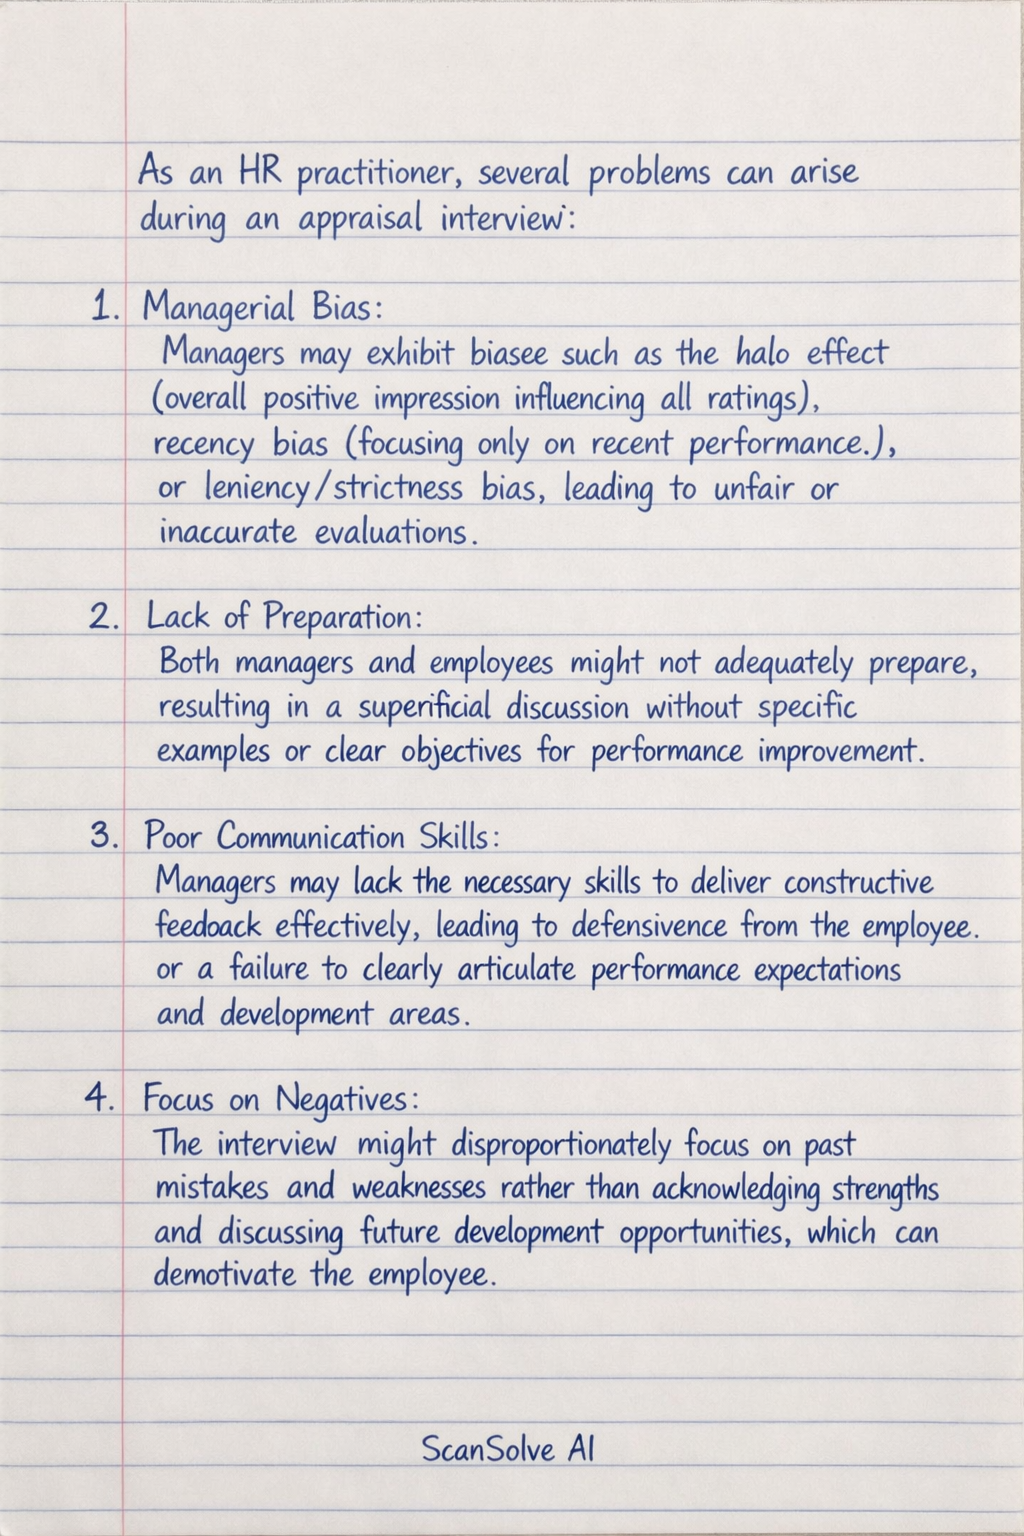 As an HR practitioner, several problems can arise
during an appraisal interview:
1. Managerial Bias:
Managers may exhibit biasee such as the halo effect
(overall positive impression influencing all ratings),
recency bias (focusing only on recent performance.),
or leniency/strictness bias, leading to unfair or
inaccurate evaluations.
2. Lack of Preparation:
Both managers and employees might not adequately prepare,
resulting in a superificial discussion without specific
examples or clear objectives for performance improvement.
3. Poor Communication Skills:
Managers may lack the necessary skills to deliver constructive
feedoack effectively, leading to defensivence from the employee.
or a failure to clearly articulate performance expectations
and development areas.
4. Focus on Negatives:
The interview might disproportionately focus on past
mistakes and weaknesses rather than acknowledging strengths
and discussing future development opportunities, which can
demotivate the employee.
ScanSolve AI